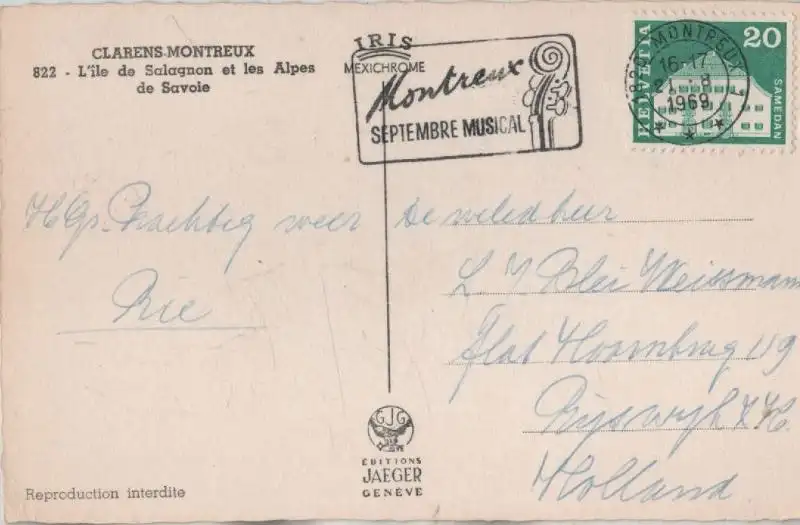 CLARENS-MONTREUX
822 - L'île de Salagnon et les Alpes
de Savoie
IRIS
MEXICHROME
Montreux
SEPTEMBRE MUSICAL
1820 MONTREUX 1
16-17
21 - 8
1969
HELVETIA
20
SAMEDAN
H Gr. Prachtig weer
Rie
De weledheer
L Blei Weissmann
flat Hoornbrug 119
Rijswijk Z.H.
Holland
GJG
ÉDITIONS
JAEGER
GENÈVE
Reproduction interdite